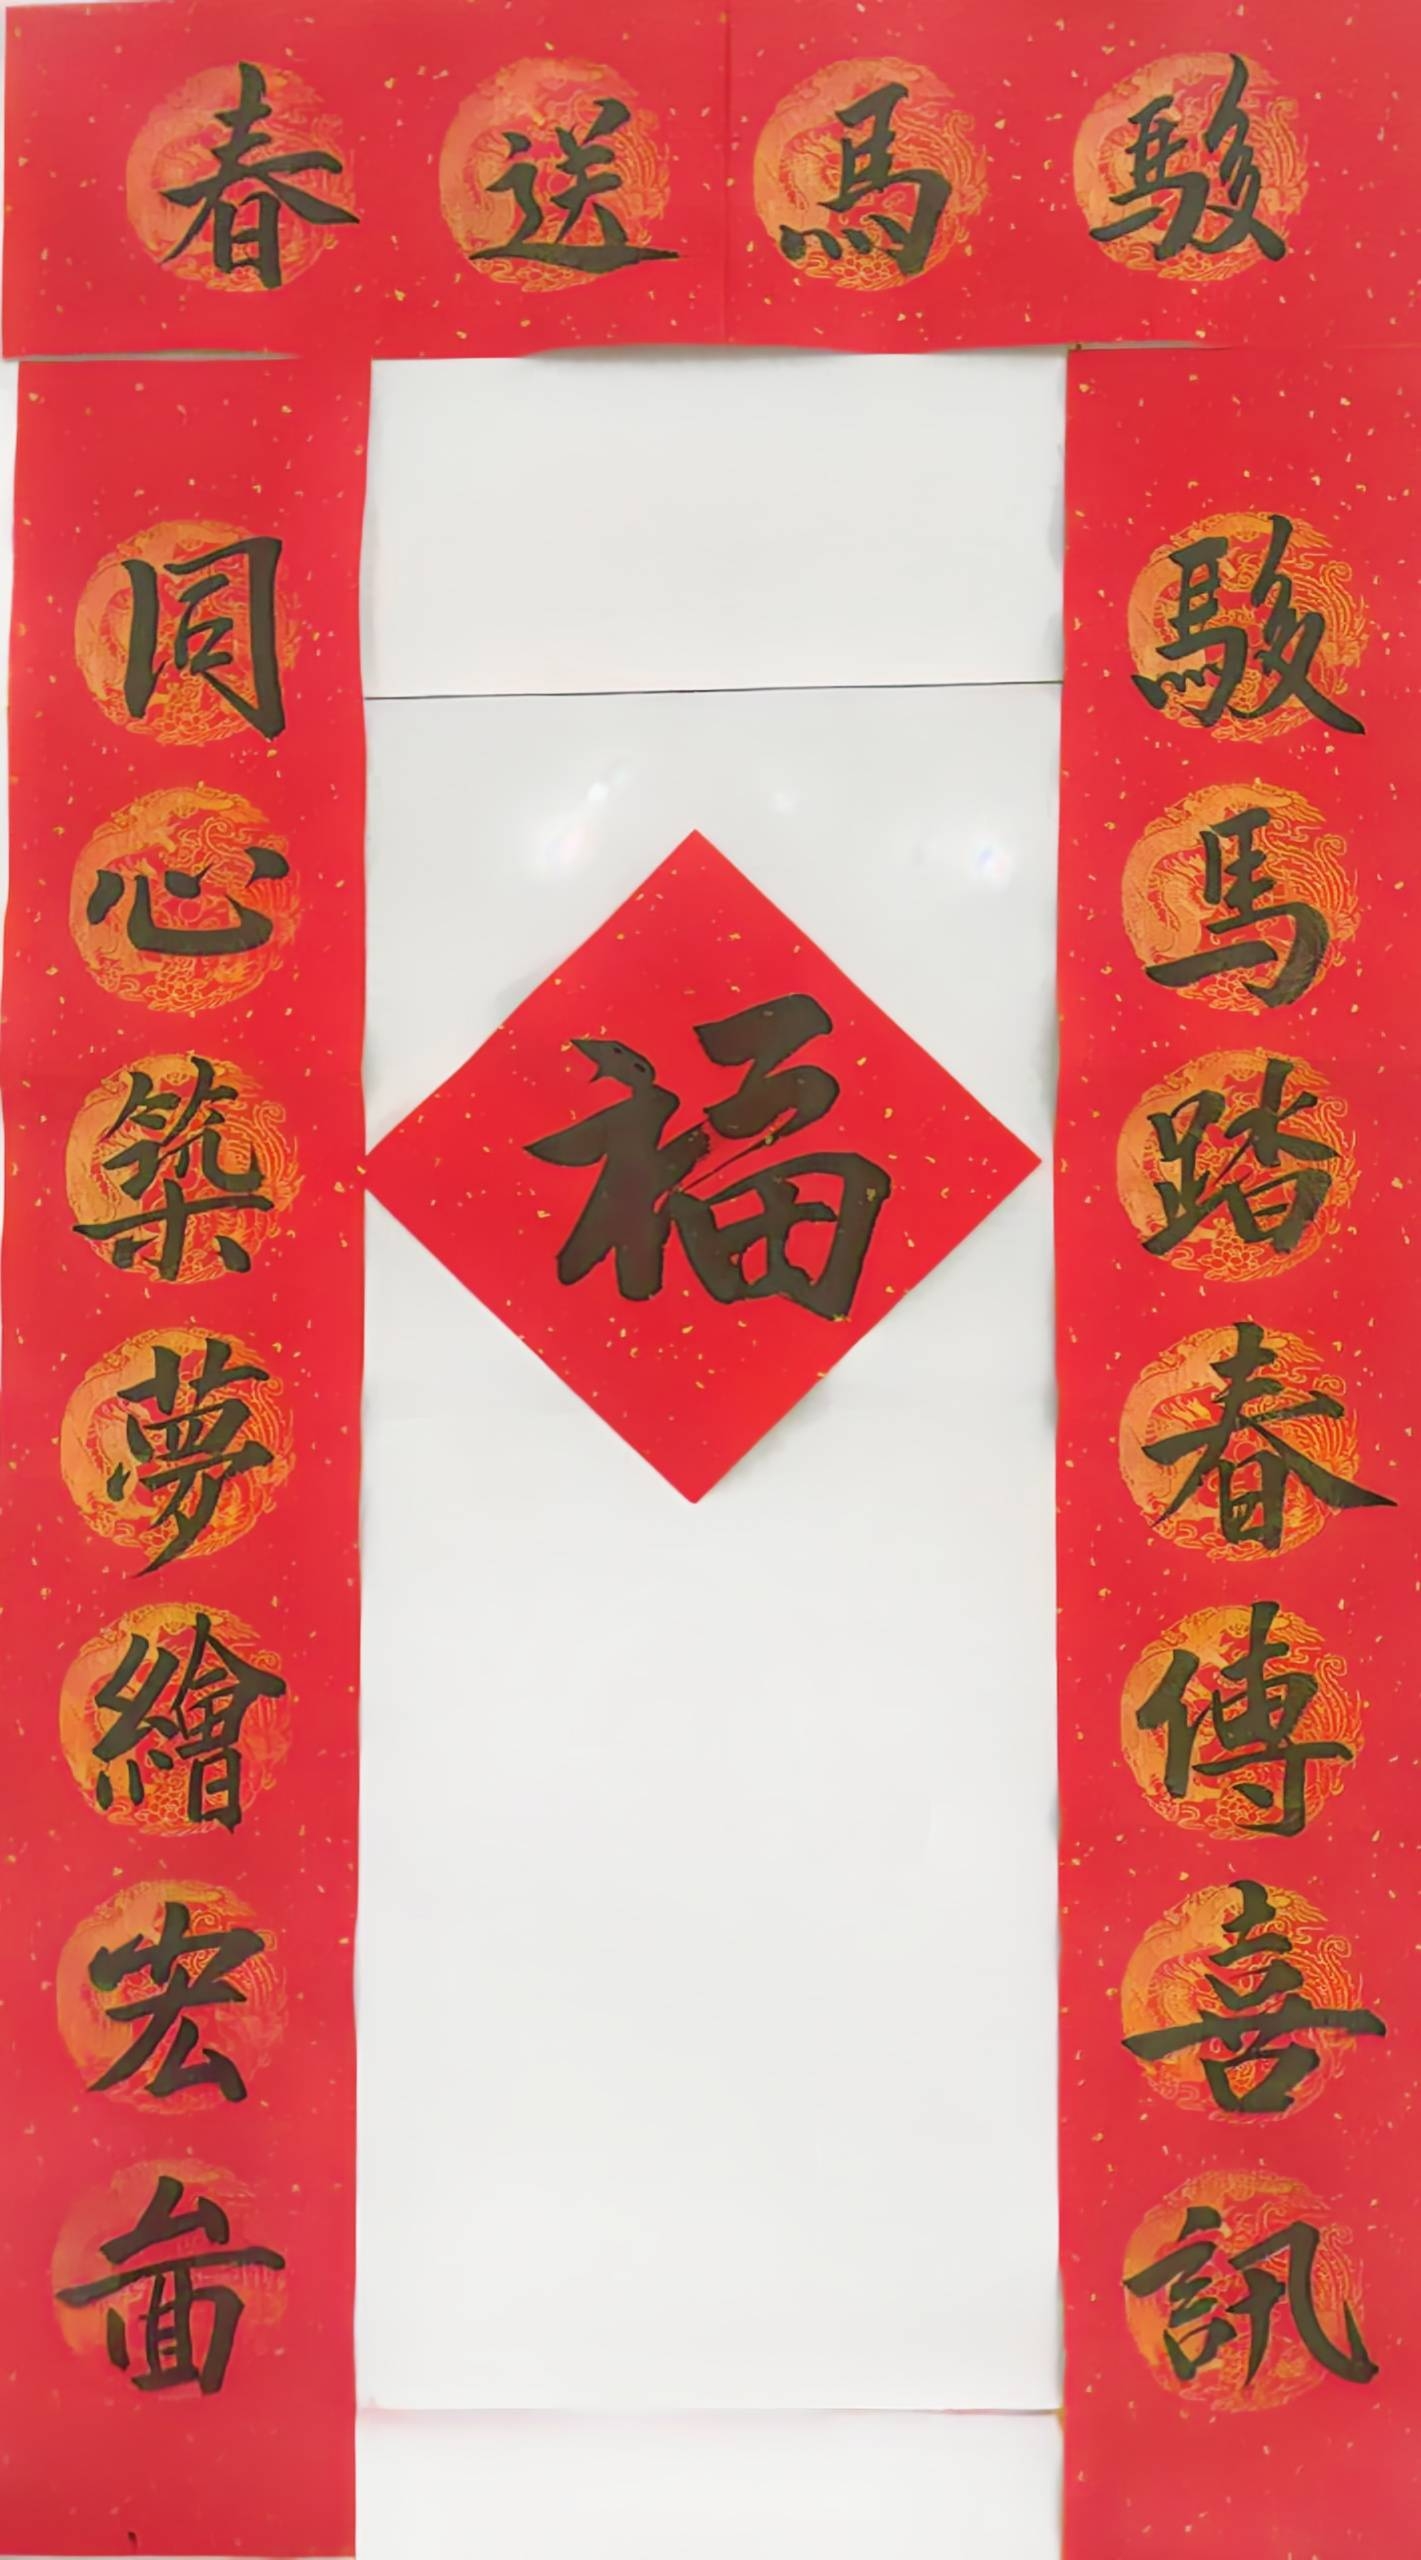 駿馬送春
駿馬踏春傳喜訊
同心築夢繪宏圖
福